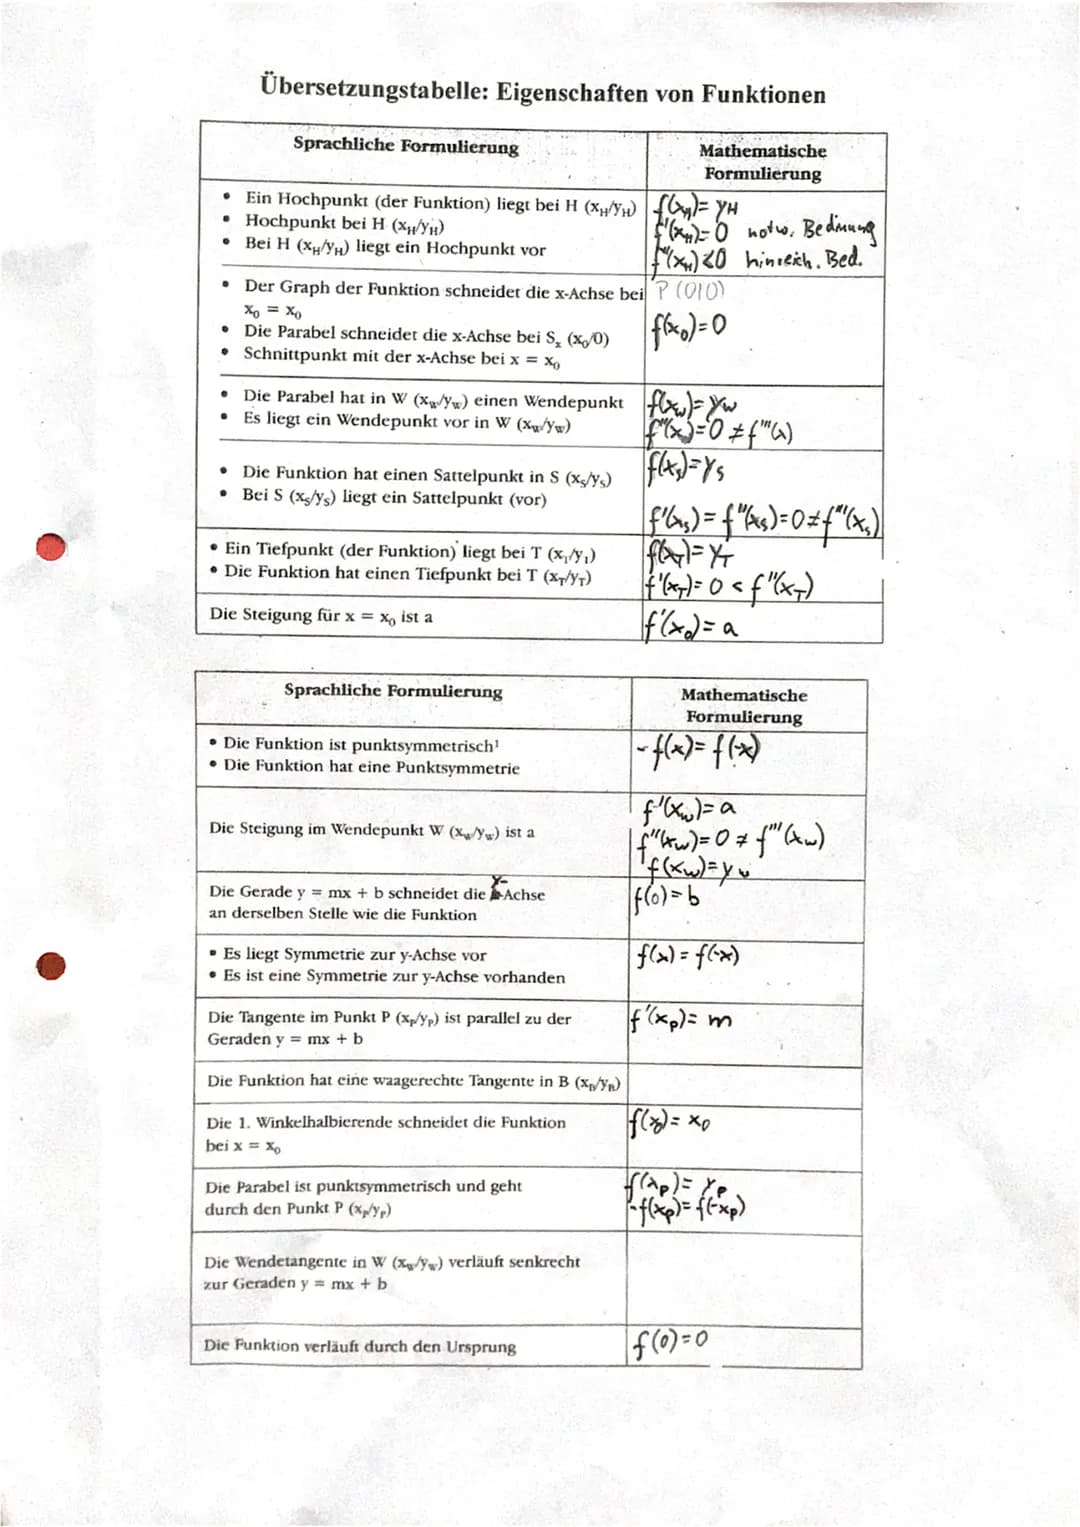 Übersetzungstabelle: Eigenschaften von Funktionen
Sprachliche Formulierung
Mathematische
Formulierung
• Ein Hochpunkt (der Funktion) liegt bei H (x_H/y_H)
• Hochpunkt bei H (x_H/y_H)
• Bei H (x_H/y_H) liegt ein Hochpunkt vor
f(x_H)= y_H
f'(x_H)= 0 notw. Bedinung
f''(x_H)<0 hinreich. Bed.
• Der Graph der Funktion schneidet die x-Achse bei
x₀ = x₀
• Die Parabel schneidet die x-Achse bei Sₓ (x₀/0)
• Schnittpunkt mit der x-Achse bei x = x₀
P (0|0)
f(x₀)=0
• Die Parabel hat in W (x_w/y_w) einen Wendepunkt
• Es liegt ein Wendepunkt vor in W (x_w/y_w)
f(x_w)=y_w
f''(x)=0 ≠ f'''(x)
• Die Funktion hat einen Sattelpunkt in S (x_s/y_s)
• Bei S (x_s/y_s) liegt ein Sattelpunkt (vor)
f(x_s)=y_s
f'(x_s)= f''(x_s)=0≠f'''(x_s)
• Ein Tiefpunkt (der Funktion) liegt bei T (x₁/y₁)
• Die Funktion hat einen Tiefpunkt bei T (x_T/y_T)
f(x_T)=y_T
f'(x_T)= 0 < f''(x_T)
Die Steigung für x = x₀ ist a
f'(x₀)= a
Sprachliche Formulierung
Mathematische
Formulierung
• Die Funktion ist punktsymmetrisch¹
• Die Funktion hat eine Punktsymmetrie
-f(x)= f(-x)
Die Steigung im Wendepunkt W (x_w/y_w) ist a
f'(x_w)= a
f''(x_w)=0 ≠ f'''(x_w)
f(x_w)=y_w
Die Gerade y = mx + b schneidet die y-Achse
an derselben Stelle wie die Funktion
f(0)=b
• Es liegt Symmetrie zur y-Achse vor
• Es ist eine Symmetrie zur y-Achse vorhanden
f(x)= f(-x)
Die Tangente im Punkt P (x_p/y_p) ist parallel zu der
Geraden y = mx + b
f'(x_p)= m
Die Funktion hat eine waagerechte Tangente in B (x_B/y_B)
Die 1. Winkelhalbierende schneidet die Funktion
bei x = x₀
f(x₀)= x₀
Die Parabel ist punktsymmetrisch und geht
durch den Punkt P (x_p/y_p)
f(x_p)= y_p
-f(x_p)= f(-x_p)
Die Wendetangente in W (x_w/y_w) verläuft senkrecht
zur Geraden y = mx + b
Die Funktion verläuft durch den Ursprung
f(0)=0